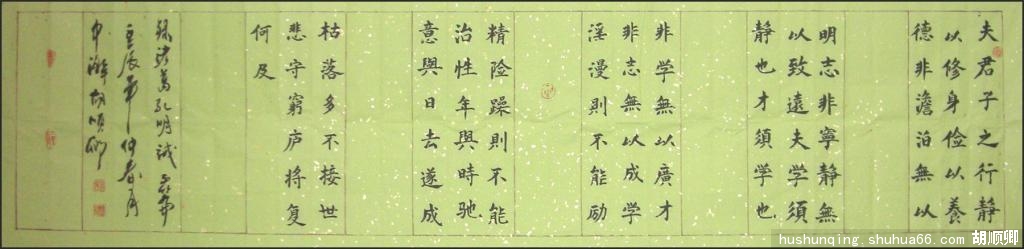 夫君子之行静
以修身俭以養
德非澹泊無以
明志非寧静無
以致遠夫学須
静也才須学也
非学無以廣才
非志無以成学
淫漫則不能励
精险躁則不能
治性年與時驰
意與日去遂成
枯落多不接世
悲守窮庐将复
何及
録诸葛孔明诫子书
壬辰年仲春月
胡順卿
hushunqing.shuhua66.com 胡顺卿